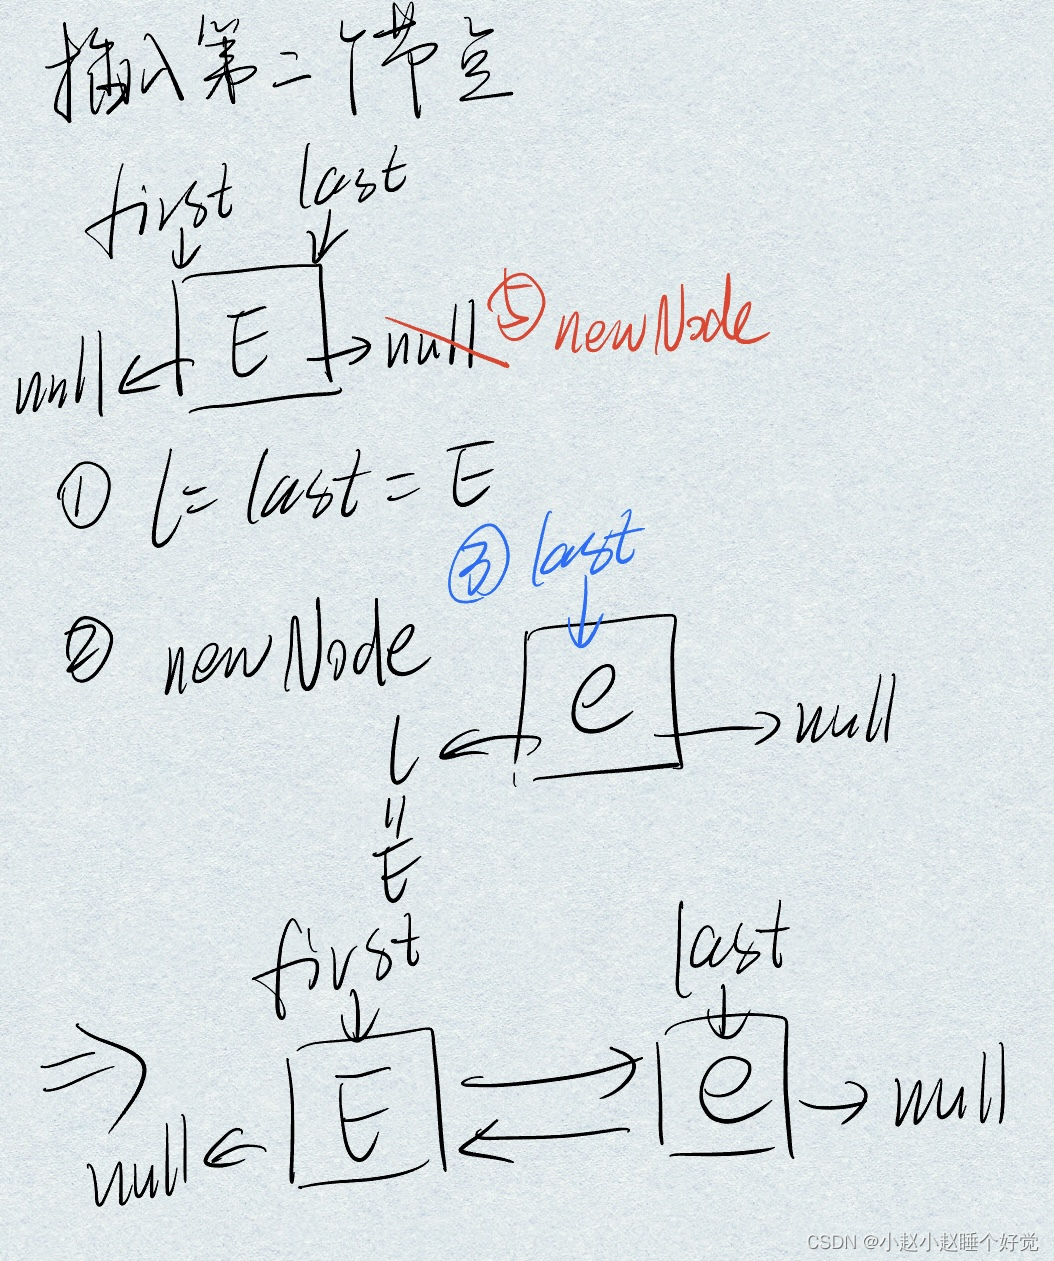 插入第二个节点
first last
E
null null ⑤ newNode
① l = last = E
③ last
② newNode
e
l null
=
E
first last
⇒ E e
null null
CSDN @小赵小赵睡个好觉